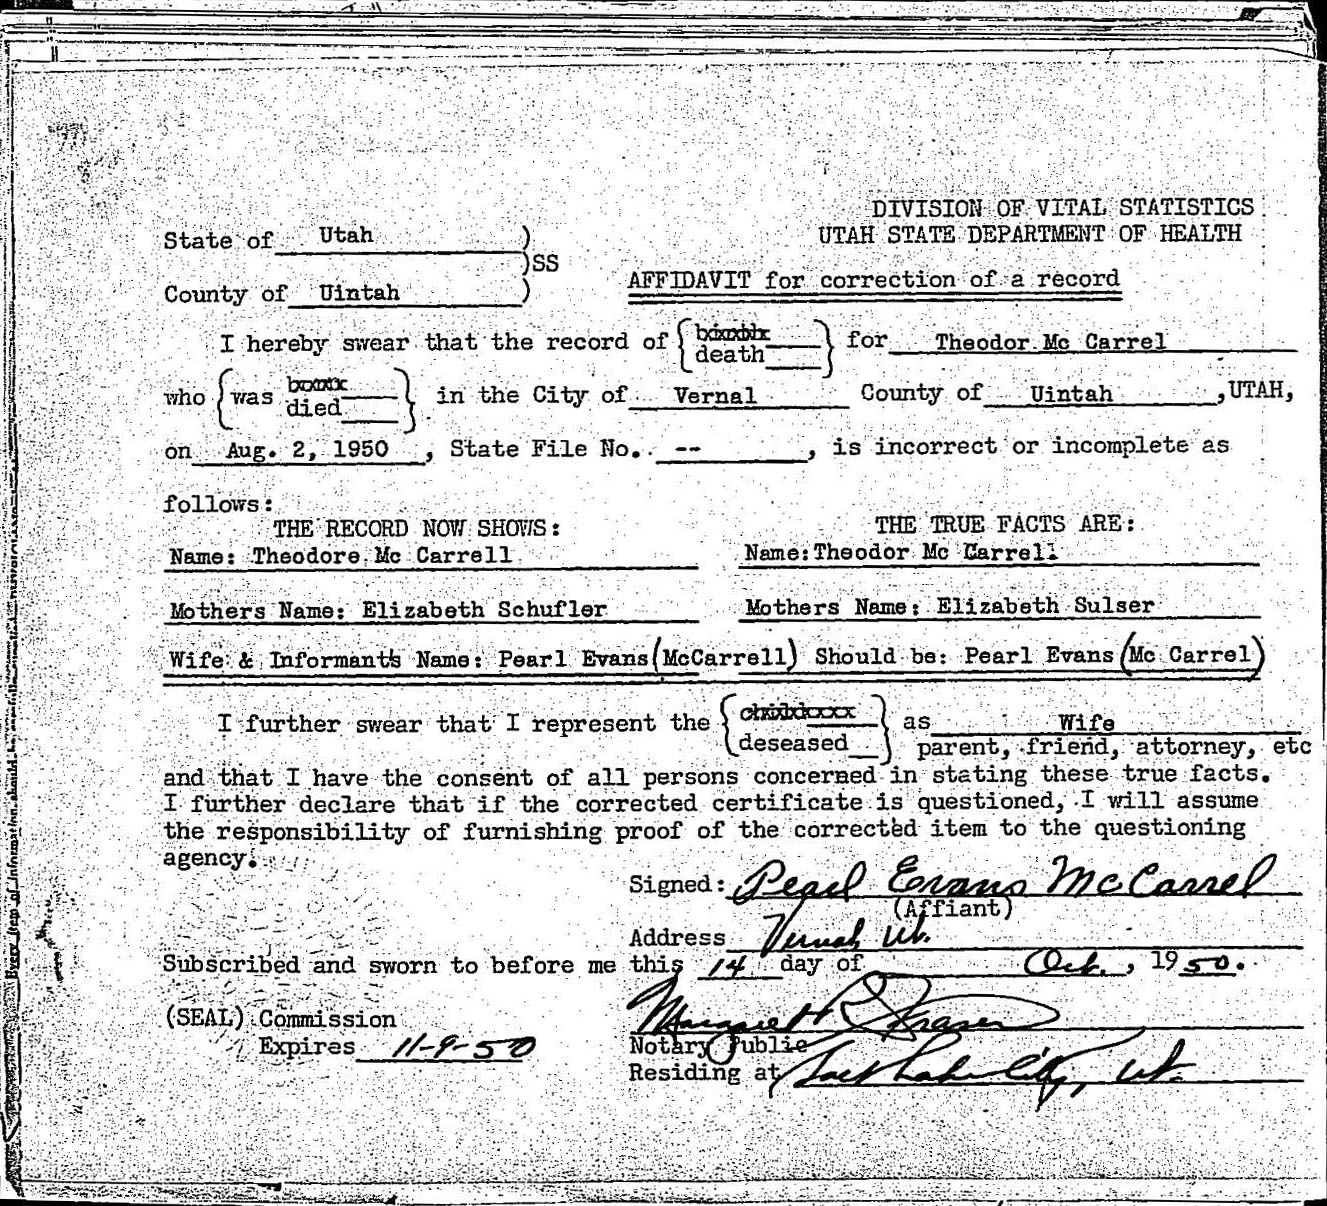 DIVISION OF VITAL STATISTICS
UTAH STATE DEPARTMENT OF HEALTH
State of Utah )
)SS
County of Uintah )
AFFIDAVIT for correction of a record
I hereby swear that the record of {birth death} for Theodor Mc Carrel
who {was born died} in the City of Vernal County of Uintah, UTAH,
on Aug. 2, 1950, State File No. --, is incorrect or incomplete as
follows:
THE RECORD NOW SHOWS: THE TRUE FACTS ARE:
Name: Theodore Mc Carrell Name: Theodor Mc Carrel
Mothers Name: Elizabeth Schufler Mothers Name: Elizabeth Sulser
Wife & Informants Name: Pearl Evans (McCarrell) Should be: Pearl Evans (Mc Carrel)
I further swear that I represent the {child deseased} as Wife
parent, friend, attorney, etc
and that I have the consent of all persons concerned in stating these true facts.
I further declare that if the corrected certificate is questioned, I will assume
the responsibility of furnishing proof of the corrected item to the questioning
agency.
Signed: Pearl Evans McCarrel
(Affiant)
Address Vernal, Ut.
Subscribed and sworn to before me this 14 day of Oct., 1950.
(SEAL) Commission Margaret R Fraser
Expires 11-9-50 Notary Public
Residing at Salt Lake City, Ut.
Every item of information should be